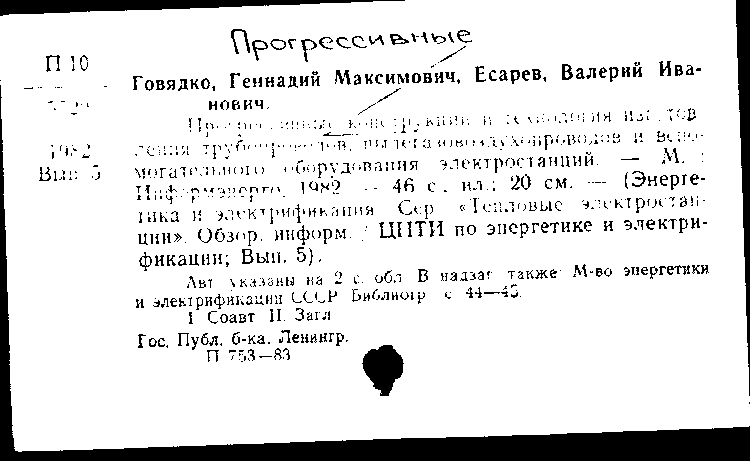 Прогрессивные
П 10
Говядко, Геннадий Максимович, Есарев, Валерий Ива-
нович.
Прогрессивные конструкции и технология изготов-
1982
ления трубопроводов, пылегазовоздухопроводов и вспо-
Вып. 5
могательного оборудования электростанций. — М. :
Информэнерго, 1982. — 46 с., ил.; 20 см. — (Энерге-
тика и электрификация. Сер. «Тепловые электростан-
ции». Обзор. информ. / ЦНТИ по энергетике и электри-
фикации; Вып. 5).
Авт. указаны на 2 с. обл. В надзаг. также: М-во энергетики
и электрификации СССР. Библиогр. с. 44—45.
I. Соавт. II. Загл.
Гос. Публ. б-ка. Ленингр.
П 753—83